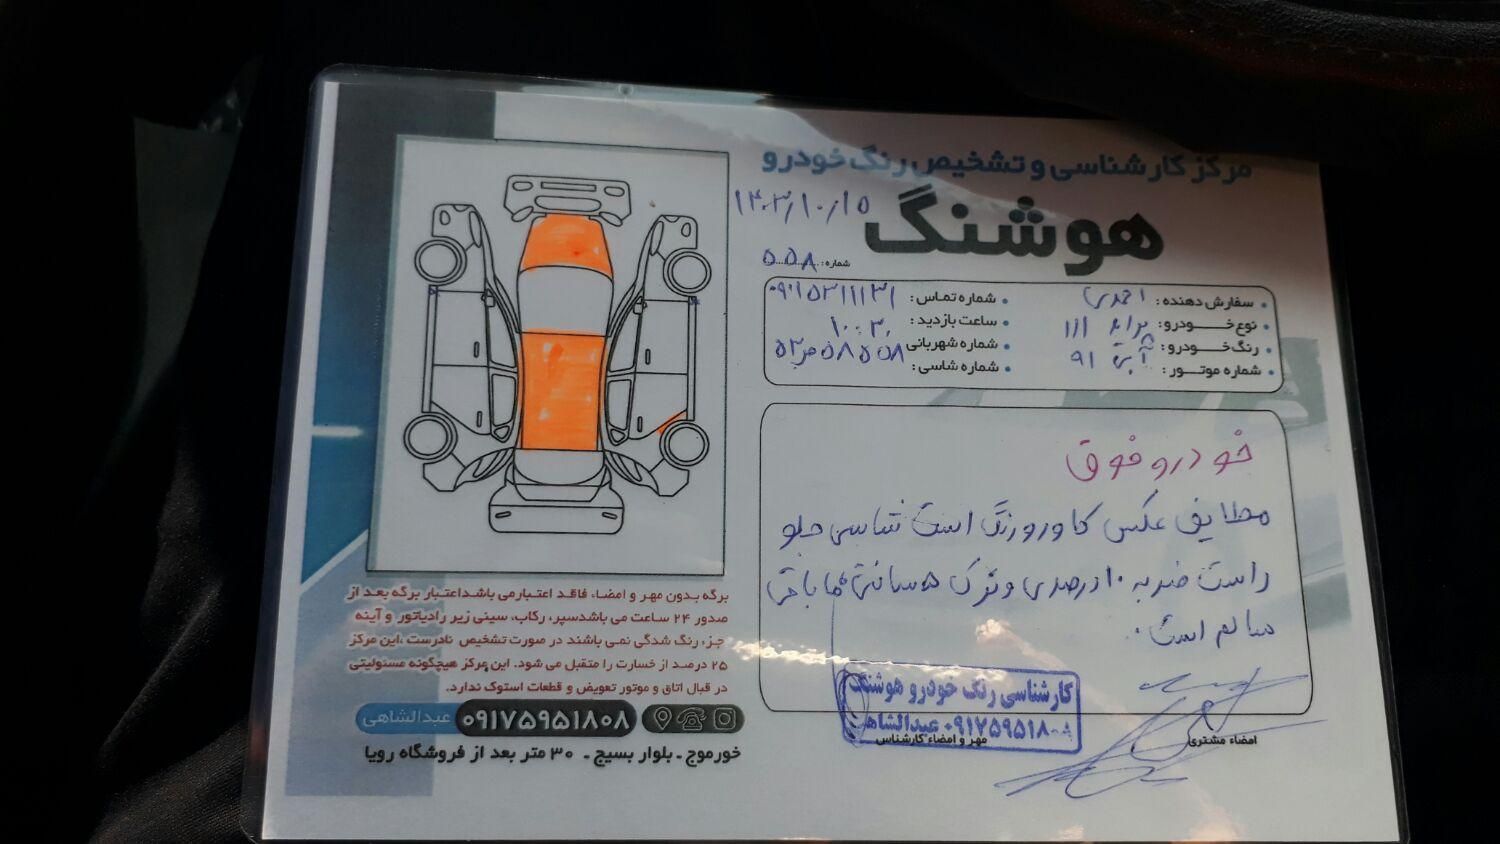 مرکز کارشناسی و تشخیص رنگ خودرو
هوشنگ
۱۴۰۳/۱۰/۱۵
شماره: ۵۵۸
سفارش دهنده: احمدی
شماره تماس:
نوع خودرو: پراید ۱۱۱
ساعت بازدید: ۱۰:۳۰
رنگ خودرو: آبی ۹۱
شماره شهربانی
شماره موتور:
شماره شاسی:
خودرو فوق
مطابق عکس کاور و رنگ است شاسی جلو
راست ضربه ۱۰ درصدی و ترک ۵ سانتی مابقی
سالم است.
برگه بدون مهر و امضاء فاقد اعتبار می باشد اعتبار برگه بعد از
صدور ۲۴ ساعت می باشد سپر، رکاب، سینی زیر رادیاتور و آینه
جزء رنگ شدگی نمی باشند در صورت تشخیص نادرست ،این مرکز
۲۵ درصد از خسارت را متقبل می شود. این مرکز هیچگونه مسئولیتی
در قبال اتاق و موتور تعویض و قطعات استوک ندارد.
۰۹۱۷۵۹۵۱۸۰۸ عبدالشاهی
خورموج ـ بلوار بسیج ـ ۳۰ متر بعد از فروشگاه رویا
کارشناسی رنگ خودرو هوشنگ
۰۹۱۷۵۹۵۱۸۰۸ عبدالشاهی
مهر و امضاء کارشناس
امضاء مشتری